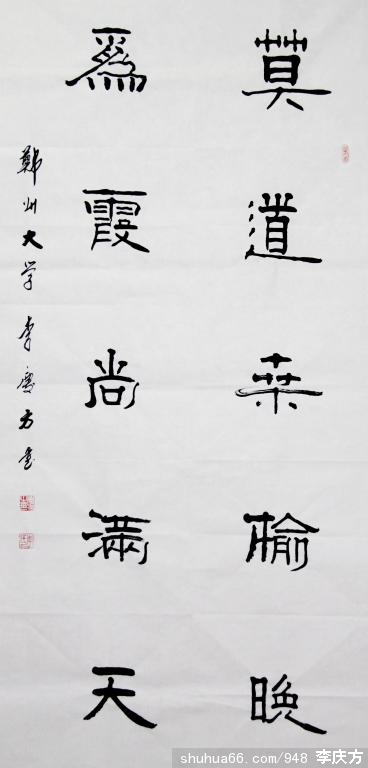 莫道桑榆晚
爲霞尚滿天
鄭州大学李慶方書
shuhua66.com/948 李庆方